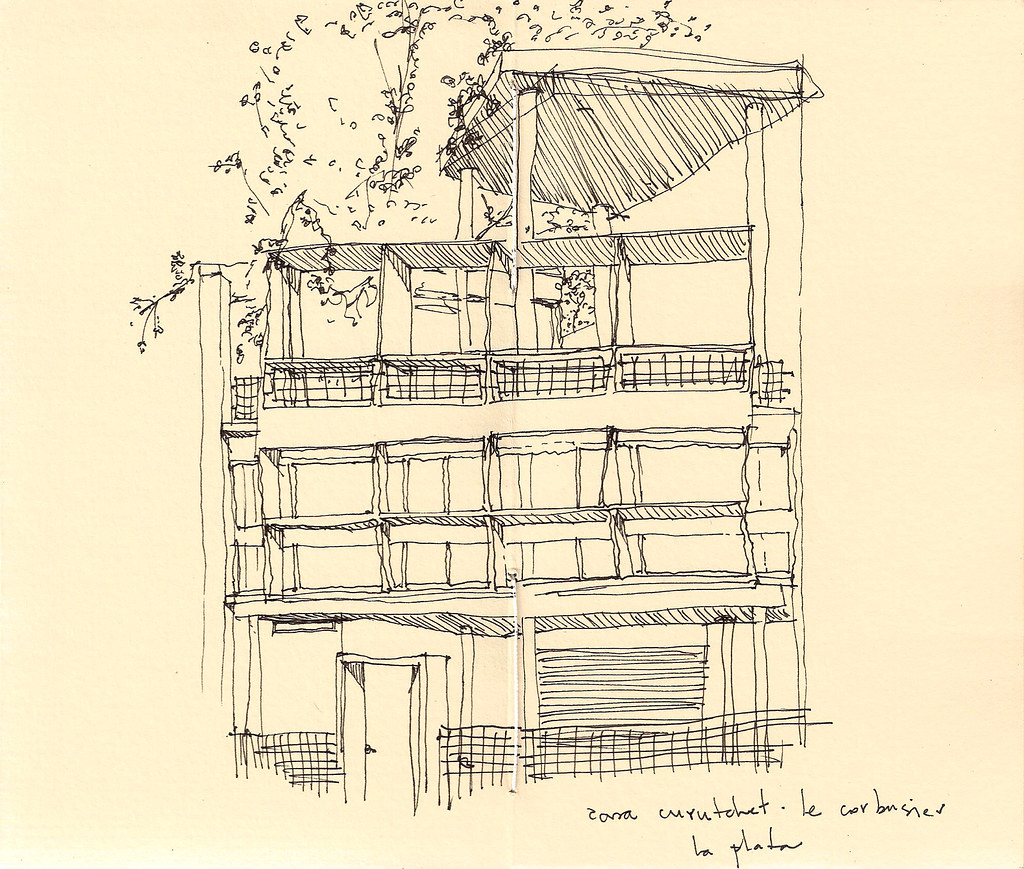 casa curutchet. le corbusier
la plata